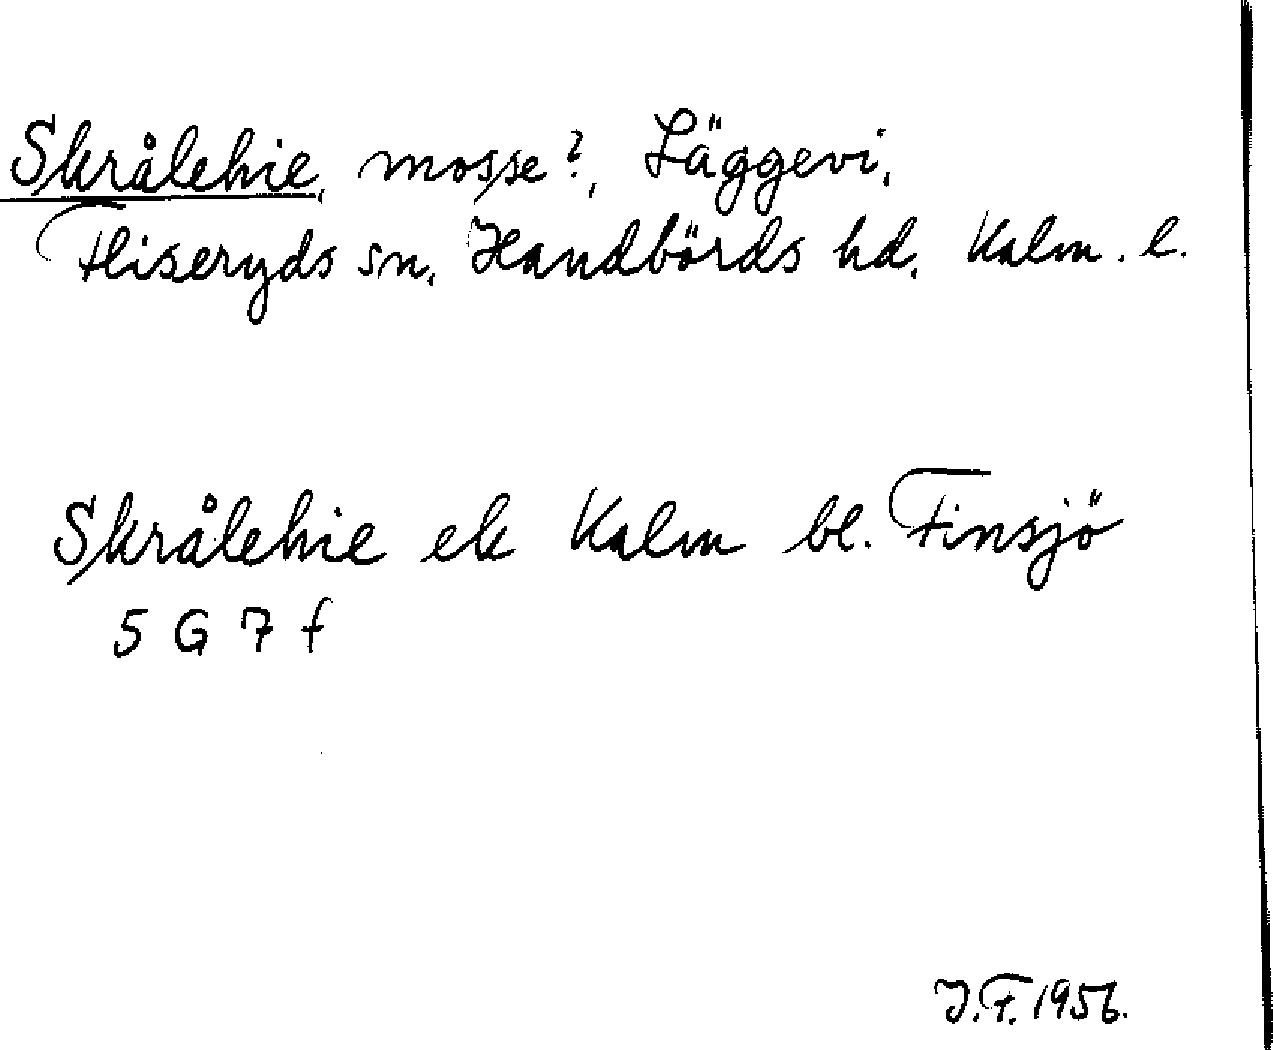 Skrålehie, mosse?, Läggevi,
Fliseryds sn, Handbörds hd, Kalm. l.
Skrålehie ek Kalm bl. Finsjö
5 G 7 f
J.F. 1956.